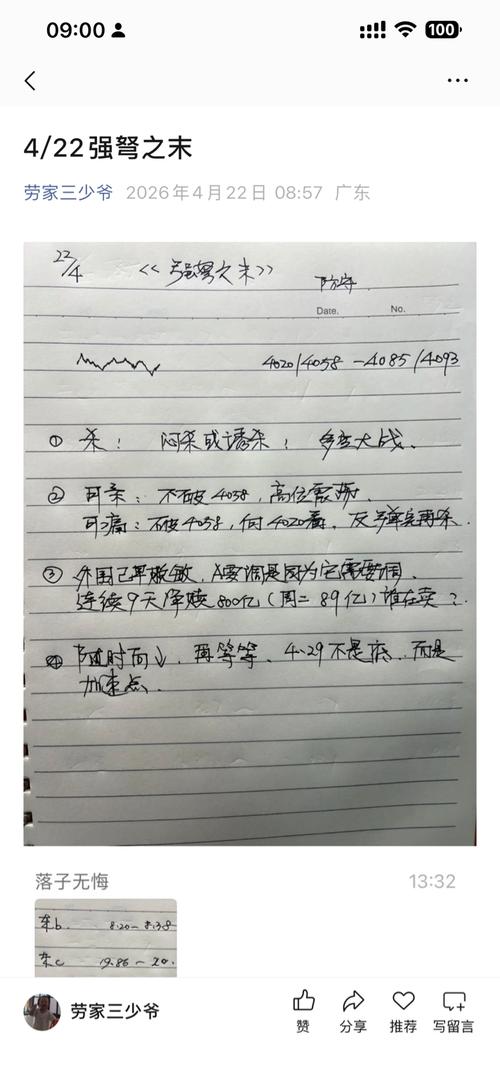 09:00
100
4/22强弩之末
劳家三少爷 2026年4月22日 08:57 广东
22/4 《强弩之末》 防守
Date. No.
4020/4058-4085/4093
① 杀! 闷杀或诱杀; 多空大战.
② 可杀: 不破4058, 高位震荡.
可痛: 不破4058, 向4020靠, 反弹完再杀.
③ 外围已早脱敏, A要调是因为它需要调.
连续9天净赎800亿(周二89亿)谁在卖?
④ 随时向↓, 再等等, 4.29不是底, 而是
加速点.
落子无悔 13:32
东b. 8.20-8.38
东c 19.86-20.
劳家三少爷
赞 分享 推荐 写留言